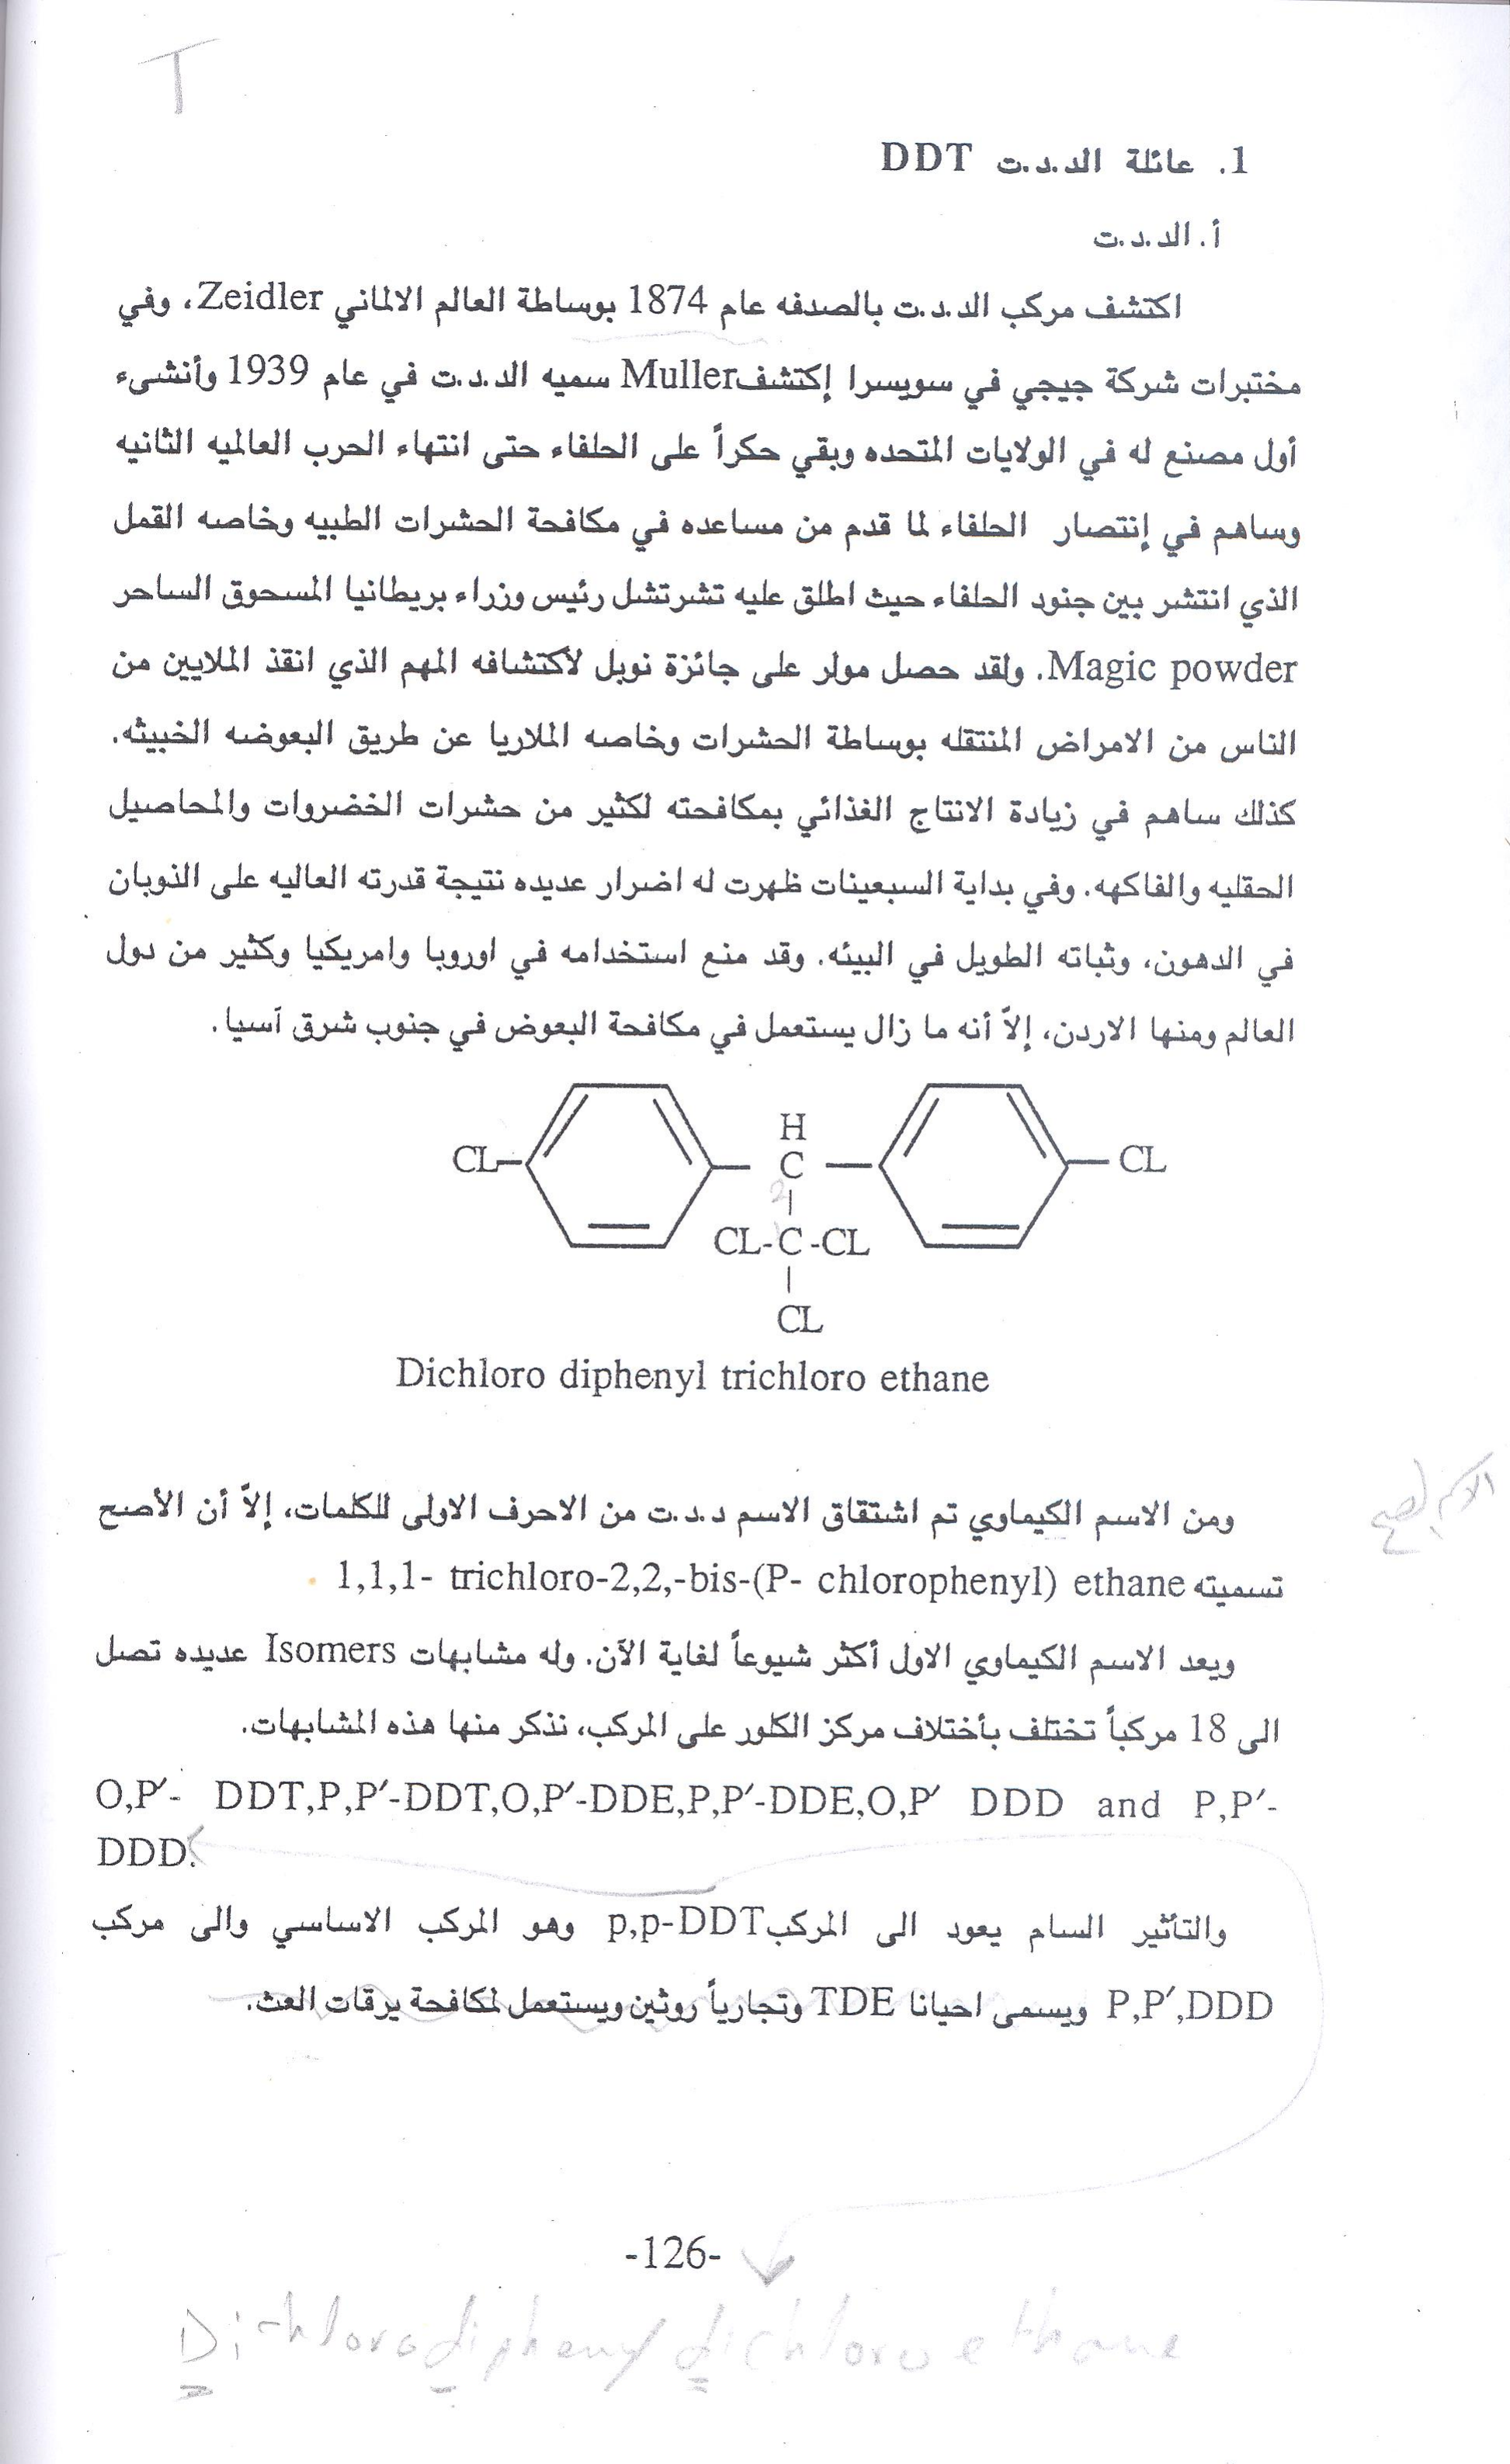 T
1. عائلة الد.د.ت DDT
أ. الد.د.ت
اكتشف مركب الد.د.ت بالصدفه عام 1874 بوساطة العالم الالماني Zeidler، وفي
مختبرات شركة جيجي في سويسرا إكتشفMuller سميه الد.د.ت في عام 1939 وأنشىء
أول مصنع له في الولايات المتحده وبقي حكراً على الحلفاء حتى انتهاء الحرب العالميه الثانيه
وساهم في إنتصار الحلفاء لما قدم من مساعده في مكافحة الحشرات الطبيه وخاصه القمل
الذي انتشر بين جنود الحلفاء حيث اطلق عليه تشرتشل رئيس وزراء بريطانيا المسحوق الساحر
Magic powder. ولقد حصل مولر على جائزة نوبل لأكتشافه المهم الذي انقذ الملايين من
الناس من الامراض المنتقله بوساطة الحشرات وخاصه الملاريا عن طريق البعوضه الخبيثه.
كذلك ساهم في زيادة الانتاج الغذائي بمكافحته لكثير من حشرات الخضروات والمحاصيل
الحقليه والفاكهه. وفي بداية السبعينات ظهرت له اضرار عديده نتيجة قدرته العاليه على الذوبان
في الدهون، وثباته الطويل في البيئه. وقد منع استخدامه في اوروبا وامريكيا وكثير من دول
العالم ومنها الاردن، إلاّ أنه ما زال يستعمل في مكافحة البعوض في جنوب شرق آسيا.
H
CL C CL
2
CL-C-CL
CL
Dichloro diphenyl trichloro ethane
ومن الاسم الكيماوي تم اشتقاق الاسم د.د.ت من الاحرف الاولى للكلمات، إلاّ أن الأصح
تسميته 1,1,1- trichloro-2,2,-bis-(P- chlorophenyl) ethane
ويعد الاسم الكيماوي الاول أكثر شيوعاً لغاية الآن. وله مشابهات Isomers عديده تصل
الى 18 مركباً تختلف بأختلاف مركز الكلور على المركب، نذكر منها هذه المشابهات.
O,P′- DDT,P,P′-DDT,O,P′-DDE,P,P′-DDE,O,P′ DDD and P,P′-
DDD.
والتأثير السام يعود الى المركبp,p-DDT وهو المركب الاساسي والى مركب
P,P′,DDD ويسمى احيانا TDE وتجارياً روثين ويستعمل لمكافحة يرقات العث.
-126-
Dichlorodiphenyl dichloroethane